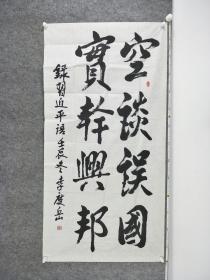 空談誤國
實幹興邦
錄習近平語 壬辰冬 李慶岳